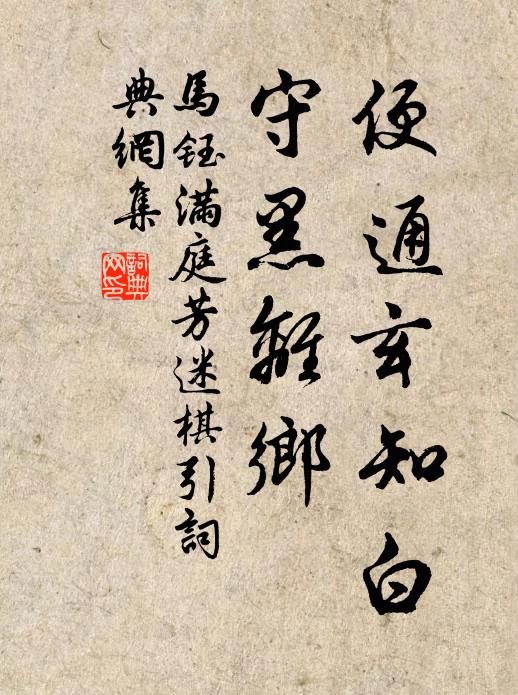 便通玄知白
守黑離鄉
馬鈺滿庭芳迷棋引詞
典網集
詞典網印